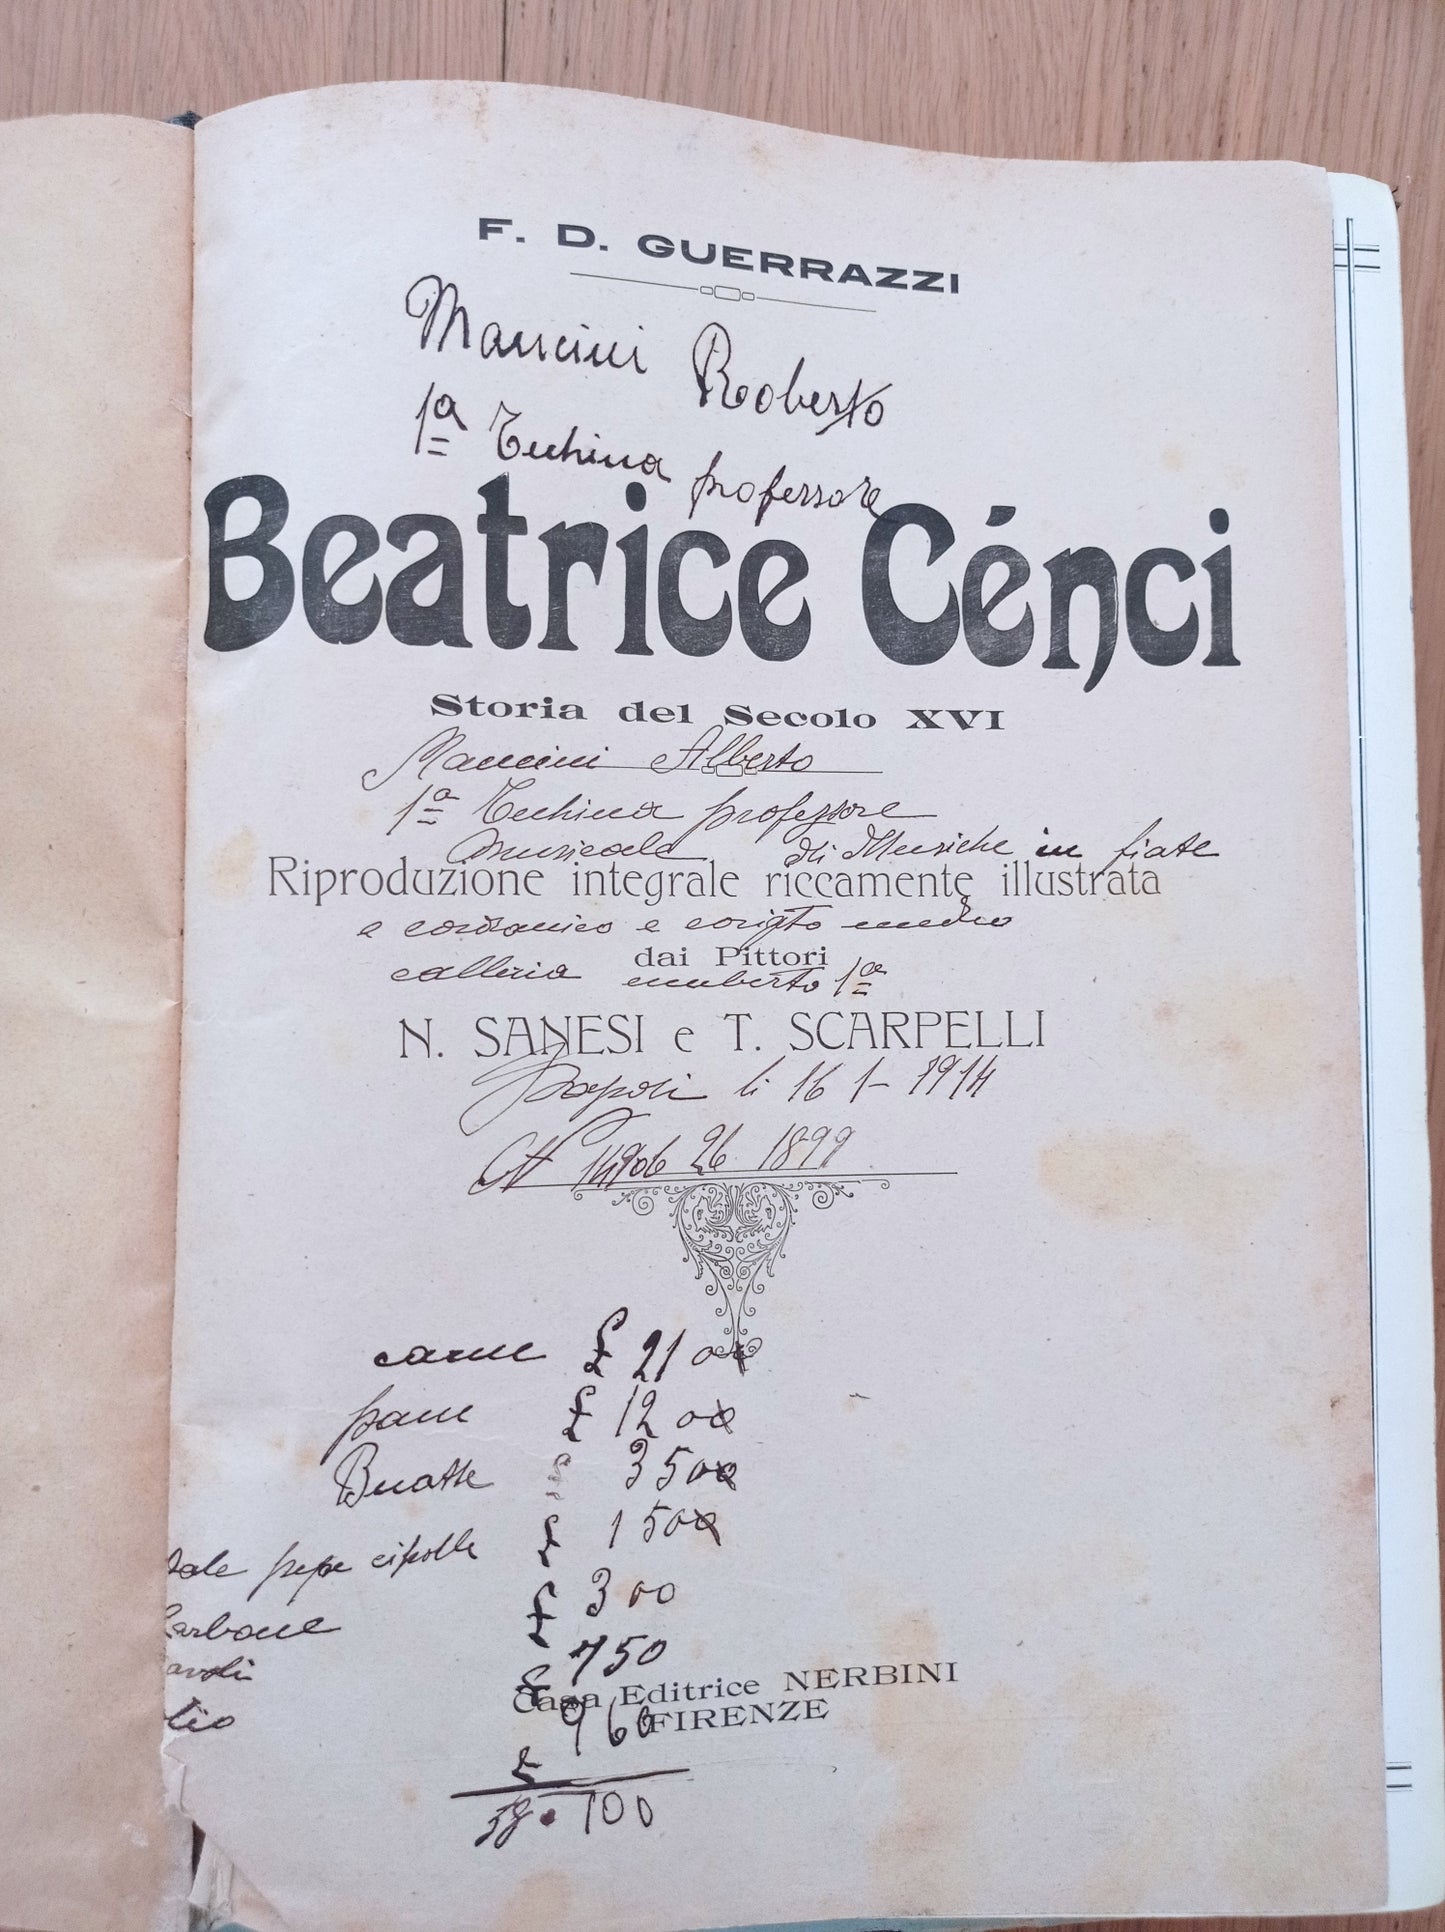 F. D. GUERRAZZI
Mancini Roberto
1ª Techina professore
Beatrice Cénci
Storia del Secolo XVI
Mancini Alberto
1ª Techina professore
musicale di Musiche in fiate
Riproduzione integrale riccamente illustrata
e e medio
dai Pittori
calleria umberto 1ª
N. SANESI e T. SCARPELLI
Napoli li 16 1- 1914
26 1899
carne £ 21 00
pane £ 12 00
3500
sale pepe cipolle £ 1500
Carbone £ 300
avoli £ 750
olio £ 960
Casa Editrice NERBINI
FIRENZE
100